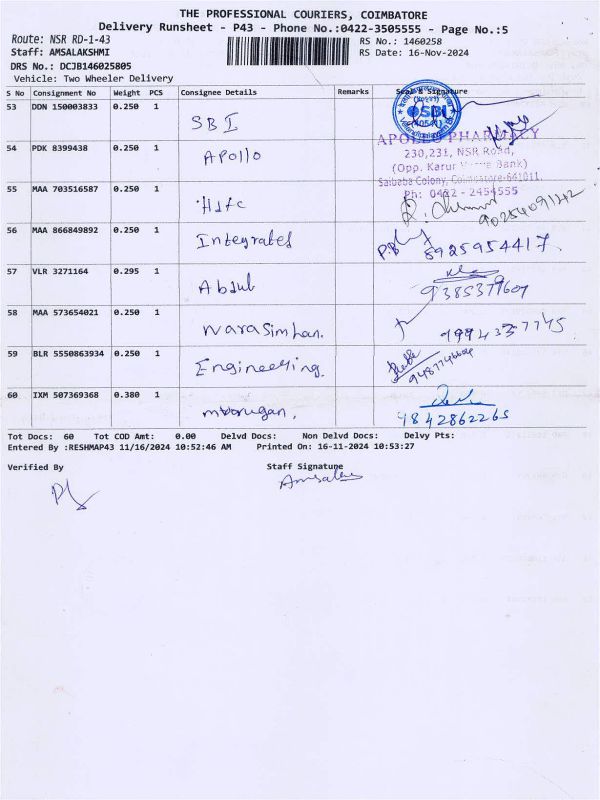 THE PROFESSIONAL COURIERS, COIMBATORE
Delivery Runsheet - P43 - Phone No.:0422-3505555 - Page No.:5
Route: NSR RD-1-43
RS No.: 1460258
Staff: AMSALAKSHMI
RS Date: 16-Nov-2024
DRS No.: DCJB146025805
Vehicle: Two Wheeler Delivery
S No Consignment No Weight PCS Consignee Details Remarks Seal & Signature
53 DDN 150003833 0.250 1 SBI
SBI
54 PDK 8399438 0.250 1 APOllO
APOLLO PHARMACY
230,231, NSR Road,
(Opp. Karur Bank)
Saibaba Colony, Coimbatore-641011.
Ph: 0422 - 2454555
55 MAA 703516587 0.250 1 Hdfc
9025409142
56 MAA 866849892 0.250 1 Integrated
P.B 8925954417
57 VLR 3271164 0.295 1 Abdul
9385379607
58 MAA 573654021 0.250 1 Narasimhan.
9994337745
59 BLR 5550863934 0.250 1 Engineering.
60 IXM 507369368 0.380 1
4842862265
Tot Docs: 60 Tot COD Amt: 0.00 Delvd Docs: Non Delvd Docs: Delvy Pts:
Entered By :RESHMAP43 11/16/2024 10:52:46 AM Printed On: 16-11-2024 10:53:27
Verified By Staff Signature